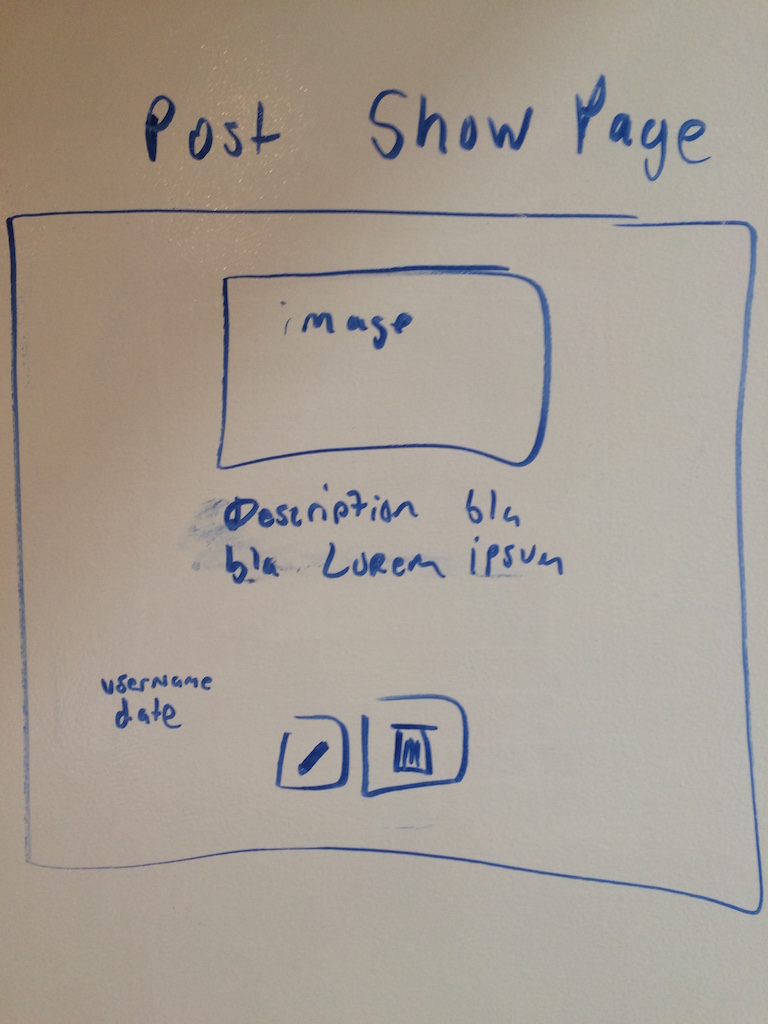 Post Show Page
image
Description bla
bla Lorem ipsum
username
date